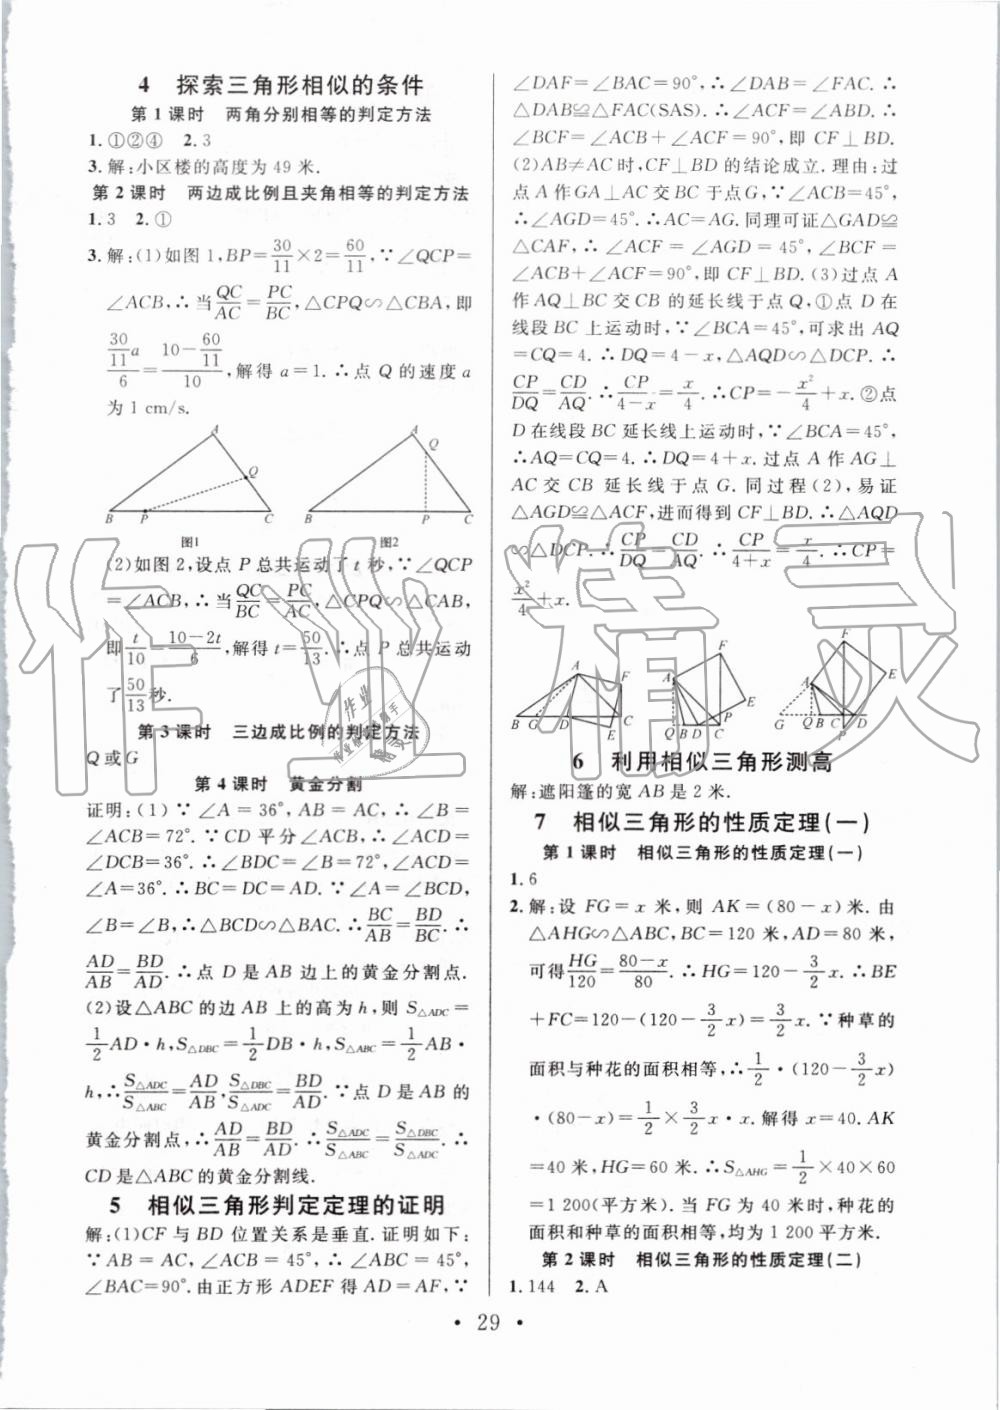 4 探索三角形相似的条件
第1课时 两角分别相等的判定方法
1.①②④ 2.3
3.解:小区楼的高度为49米.
第2课时 两边成比例且夹角相等的判定方法
1.3 2.①
3.解:(1)如图1,BP=30/11×2=60/11,∵∠QCP=
∠ACB,∴当QC/AC=PC/BC,△CPQ∽△CBA,即
(30/11 a)/6=(10-60/11)/10,解得a=1.∴点Q的速度a
为1 cm/s.
A A
Q
B P C B P C
图1 图2
(2)如图2,设点P总共运动了t秒,∵∠QCP
=∠ACB,∴当QC/BC=PC/AC,△CPQ∽△CAB,
即t/10=(10-2t)/6,解得t=50/13.∴点P总共运动
了50/13秒.
第3课时 三边成比例的判定方法
Q或G
第4课时 黄金分割
证明:(1)∵∠A=36°,AB=AC,∴∠B=
∠ACB=72°.∵CD平分∠ACB,∴∠ACD=
∠DCB=36°.∴∠BDC=∠B=72°,∠ACD=
∠A=36°.∴BC=DC=AD.∵∠A=∠BCD,
∠B=∠B,∴△BCD∽△BAC.∴BC/AB=BD/BC.∴
AD/AB=BD/AD.∴点D是AB边上的黄金分割点.
(2)设△ABC的边AB上的高为h,则S△ADC=
1/2AD·h,S△DBC=1/2DB·h,S△ABC=1/2AB·
h,∴S△ADC/S△ABC=AD/AB,S△DBC/S△ADC=BD/AD.∵点D是AB的
黄金分割点,∴AD/AB=BD/AD.∴S△ADC/S△ABC=S△DBC/S△ADC.∴
CD是△ABC的黄金分割线.
5 相似三角形判定定理的证明
解:(1)CF与BD位置关系是垂直.证明如下:
∵AB=AC,∠ACB=45°,∴∠ABC=45°,
∠BAC=90°.由正方形ADEF得AD=AF,∵
∠DAF=∠BAC=90°,∴∠DAB=∠FAC.∴
△DAB≌△FAC(SAS).∴∠ACF=∠ABD.∴
∠BCF=∠ACB+∠ACF=90°,即CF⊥BD.
(2)AB≠AC时,CF⊥BD的结论成立.理由:过
点A作GA⊥AC交BC于点G,∵∠ACB=45°,
∴∠AGD=45°.∴AC=AG.同理可证△GAD≌
△CAF,∴∠ACF=∠AGD=45°,∠BCF=
∠ACB+∠ACF=90°,即CF⊥BD.(3)过点A
作AQ⊥BC交CB的延长线于点Q,①点D在
线段BC上运动时,∵∠BCA=45°,可求出AQ
=CQ=4.∴DQ=4-x,△AQD∽△DCP.∴
CP/DQ=CD/AQ.∴CP/(4-x)=x/4.∴CP=-x²/4+x.②点
D在线段BC延长线上运动时,∵∠BCA=45°,
∴AQ=CQ=4.∴DQ=4+x.过点A作AG⊥
AC交CB延长线于点G.同过程(2),易证
△AGD≌△ACF,进而得到CF⊥BD.∴△AQD
∽△DCP.∴CP/DQ=CD/AQ.∴CP/(4+x)=x/4.∴CP=
x²/4+x.
A F E B G D C
F A E B D C P
F A E G Q B C D P
6 利用相似三角形测高
解:遮阳篷的宽AB是2米.
7 相似三角形的性质定理(一)
第1课时 相似三角形的性质定理(一)
1.6
2.解:设FG=x米,则AK=(80-x)米.由
△AHG∽△ABC,BC=120米,AD=80米,
可得HG/120=(80-x)/80.∴HG=120-3/2x.∴BE
+FC=120-(120-3/2x)=3/2x.∵种草的
面积与种花的面积相等,∴1/2·(120-3/2x)
·(80-x)=1/2×3/2x·x.解得x=40.AK
=40米,HG=60米.∴S△AHG=1/2×40×60
=1 200(平方米).当FG为40米时,种花的
面积和种草的面积相等,均为1 200平方米.
第2课时 相似三角形的性质定理(二)
1.144 2.A
·29·
作业精灵